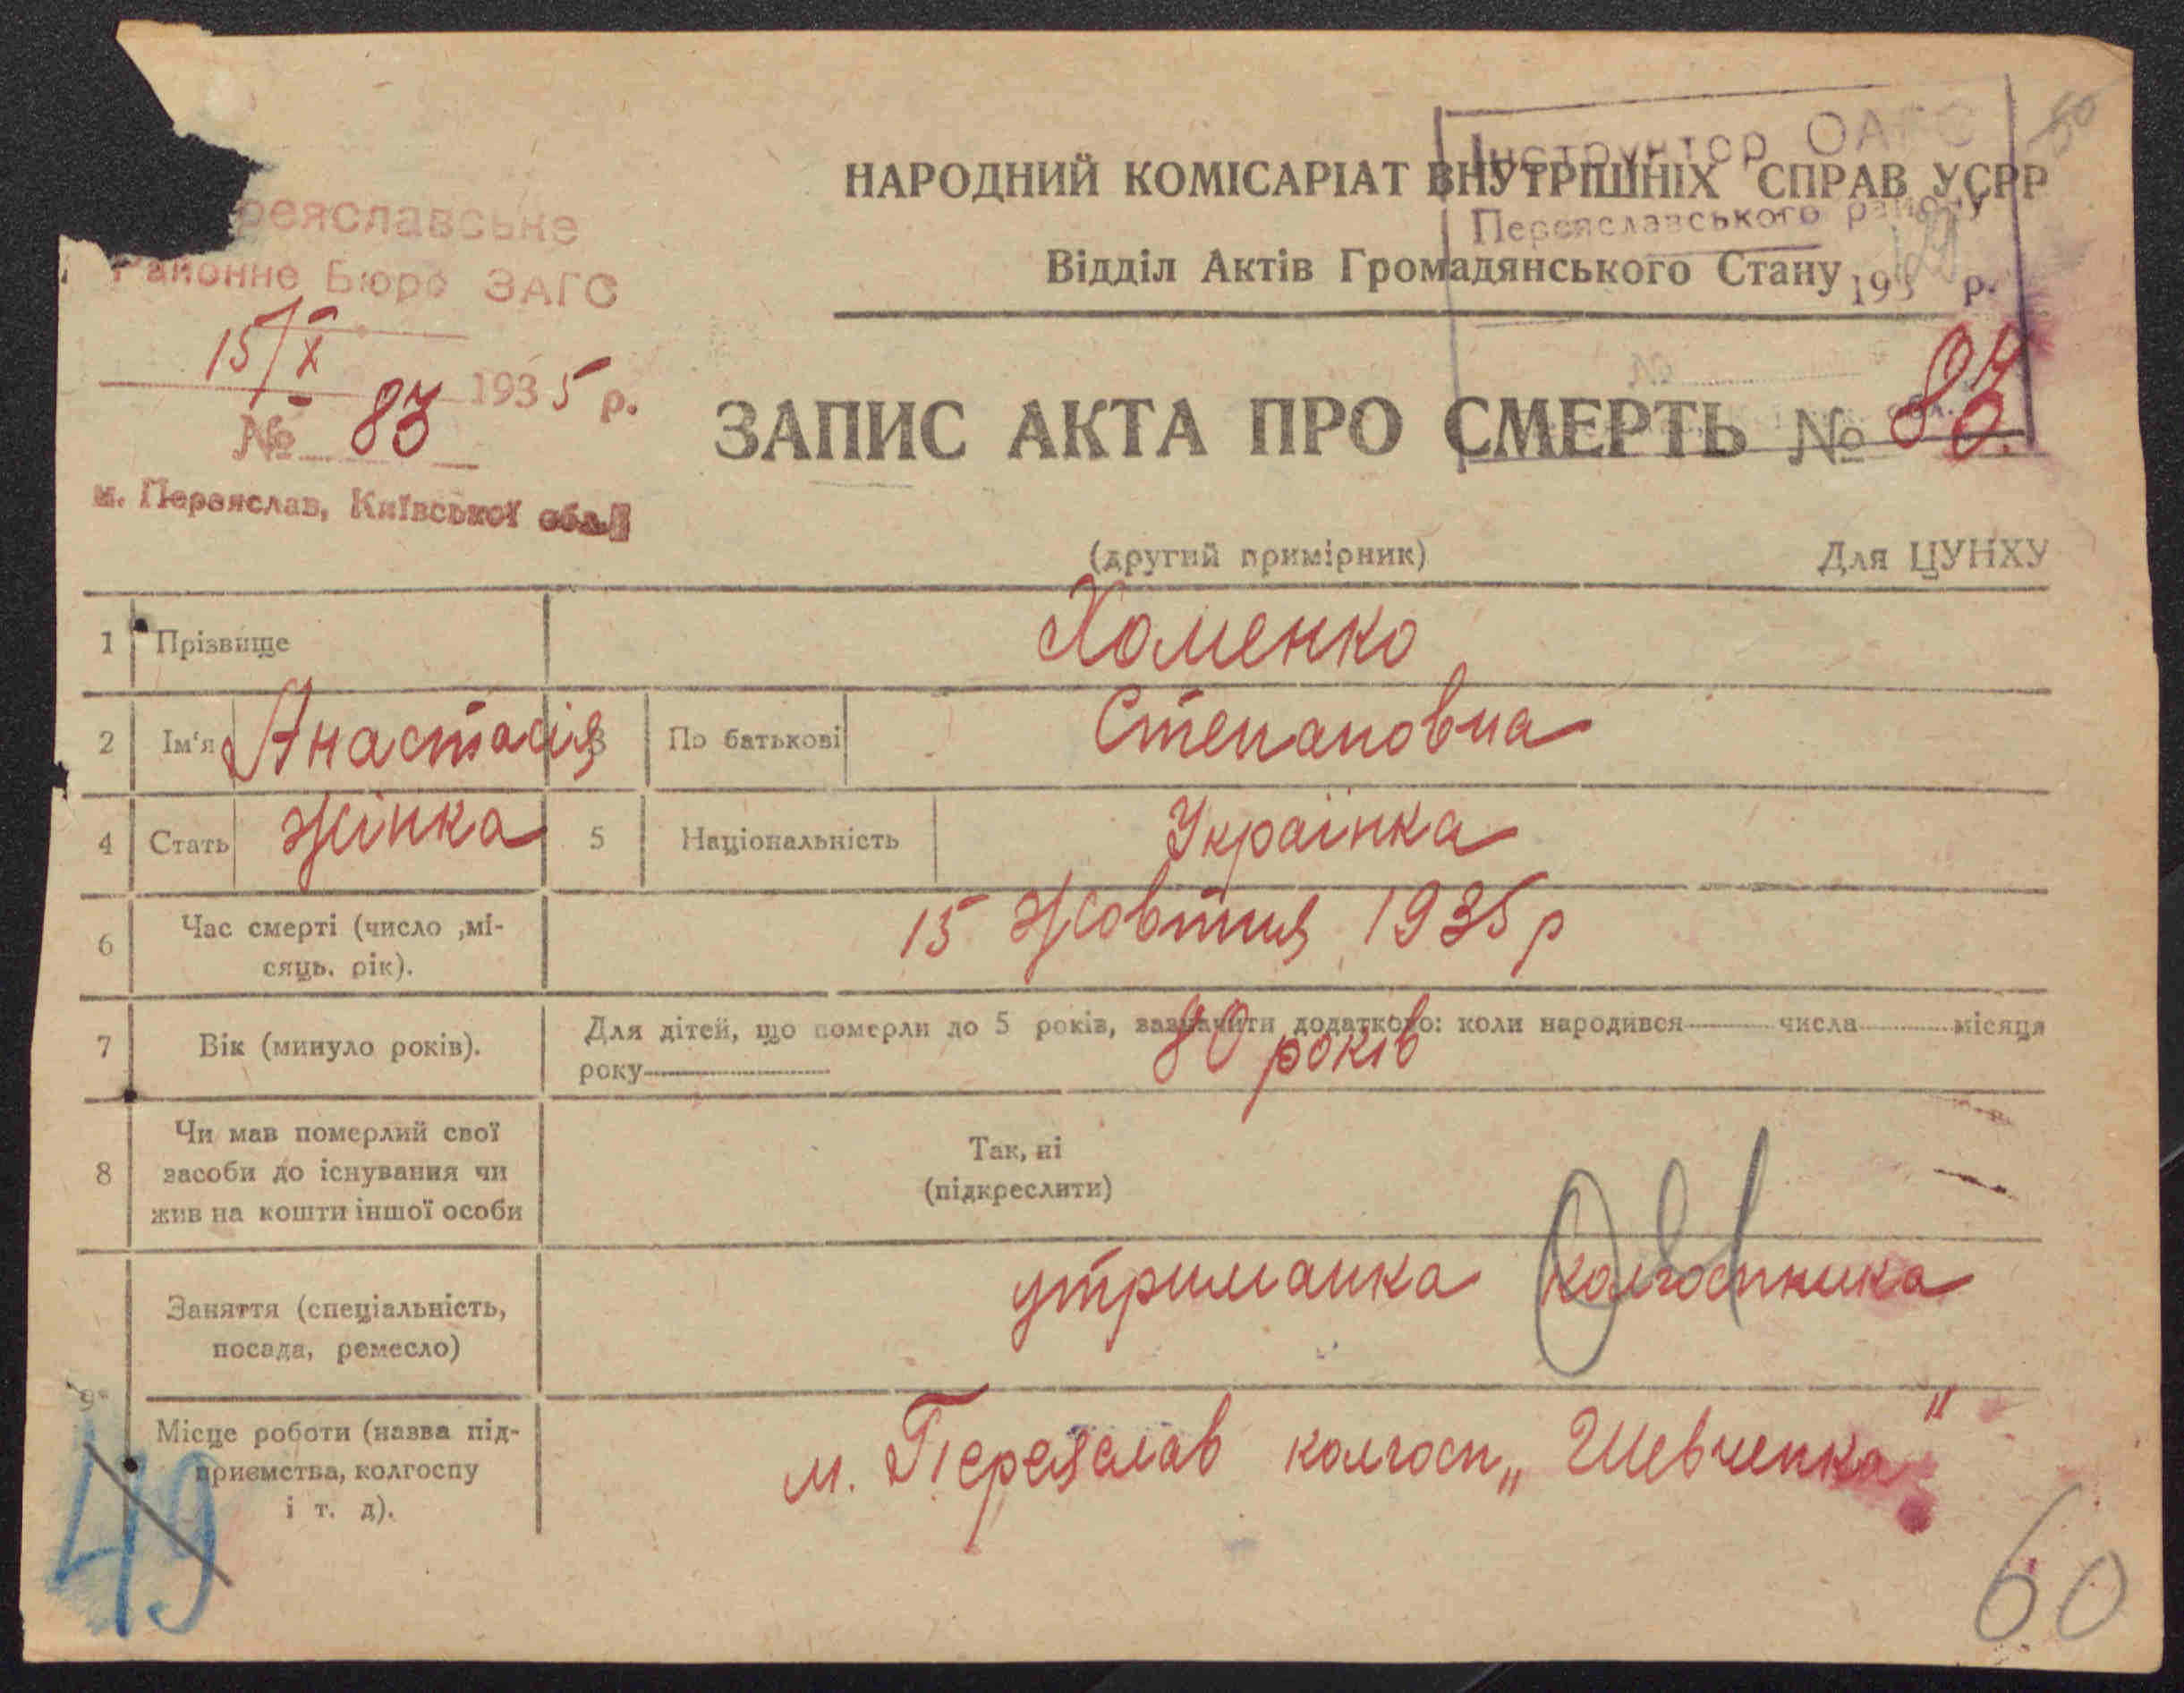 50
Інструктор ОАГС
НАРОДНИЙ КОМІСАРІАТ ВНУТРІШНІХ СПРАВ УСРР
Переяславського району
Відділ Актів Громадянського Стану
193 р.
реяславське
Районне Бюро ЗАГС
15/X 1935 р.
№ 83
м. Переяслав, Київської обл.
ЗАПИС АКТА ПРО СМЕРТЬ №
(другий примірник) Для ЦУНХУ
1 Прізвище Хоменко
2 Ім'я Анастасія 3 По батькові Степановна
4 Стать жінка 5 Національність Українка
6 Час смерті (число ,мі-
сяць, рік). 15 жовтня 1935 р
7 Вік (минуло років). Для дітей, що померли до 5 років, зазначити додатково: коли народився числа місяця
року 80 років
8 Чи мав померлий свої
засоби до існування чи
жив на кошти іншої особи
Так, ні
(підкреслити)
9 Заняття (спеціальність,
посада, ремесло) утриманка колгоспника
Місце роботи (назва під-
приємства, колгоспу
і т. д). м. Переяслав колгосп „Шевченка"
49
60